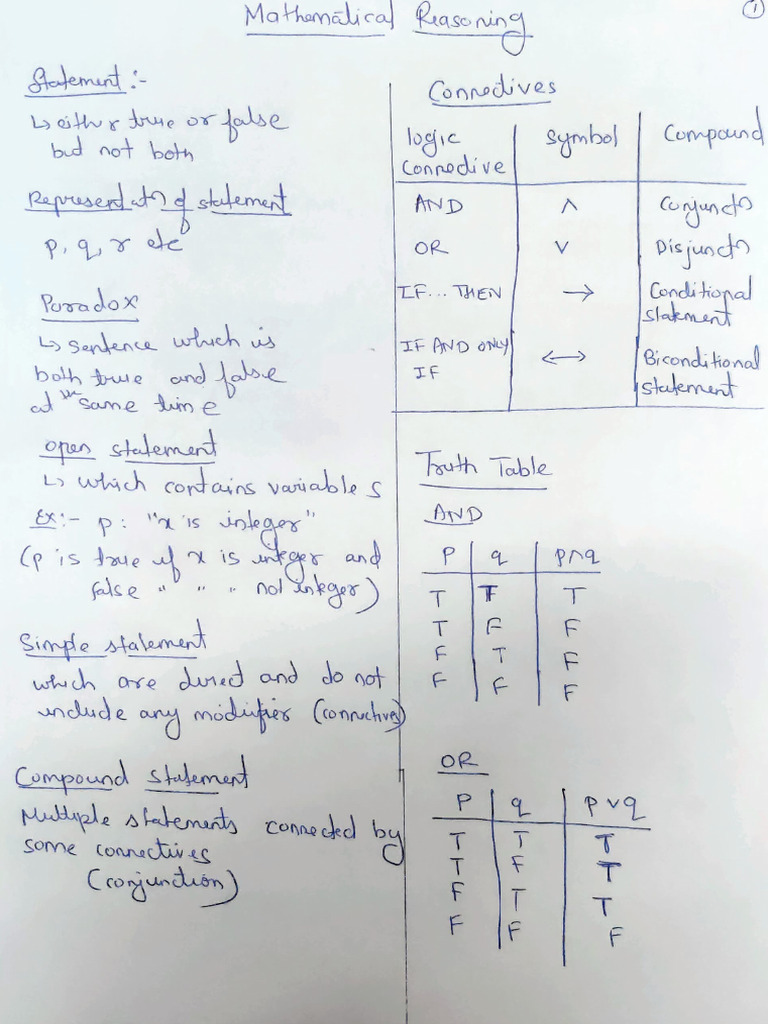 Mathematical Reasoning
1
Statement :-
↳ either true or false
but not both
Representatn of statement
p, q, r etc
Paradox
↳ sentence which is
both true and false
at the same time
open statement
↳ which contains variables
Ex:- p: "x is integer"
(p is true if x is integer and
false " " " not integer)
Simple statement
which are direct and do not
include any modifier (connectives)
Compound statement
Multiple statements connected by
some connectives
(conjunction)
Connectives
logic connective | symbol | Compound
AND | ∧ | Conjunctn
OR | ∨ | Disjunctn
IF... THEN | → | Conditional statement
IF AND ONLY IF | ↔ | Biconditional statement
Truth Table
AND
P | q | p∧q
T | T | T
T | F | F
F | T | F
F | F | F
OR
P | q | p∨q
T | T | T
T | F | T
F | T | T
F | F | F